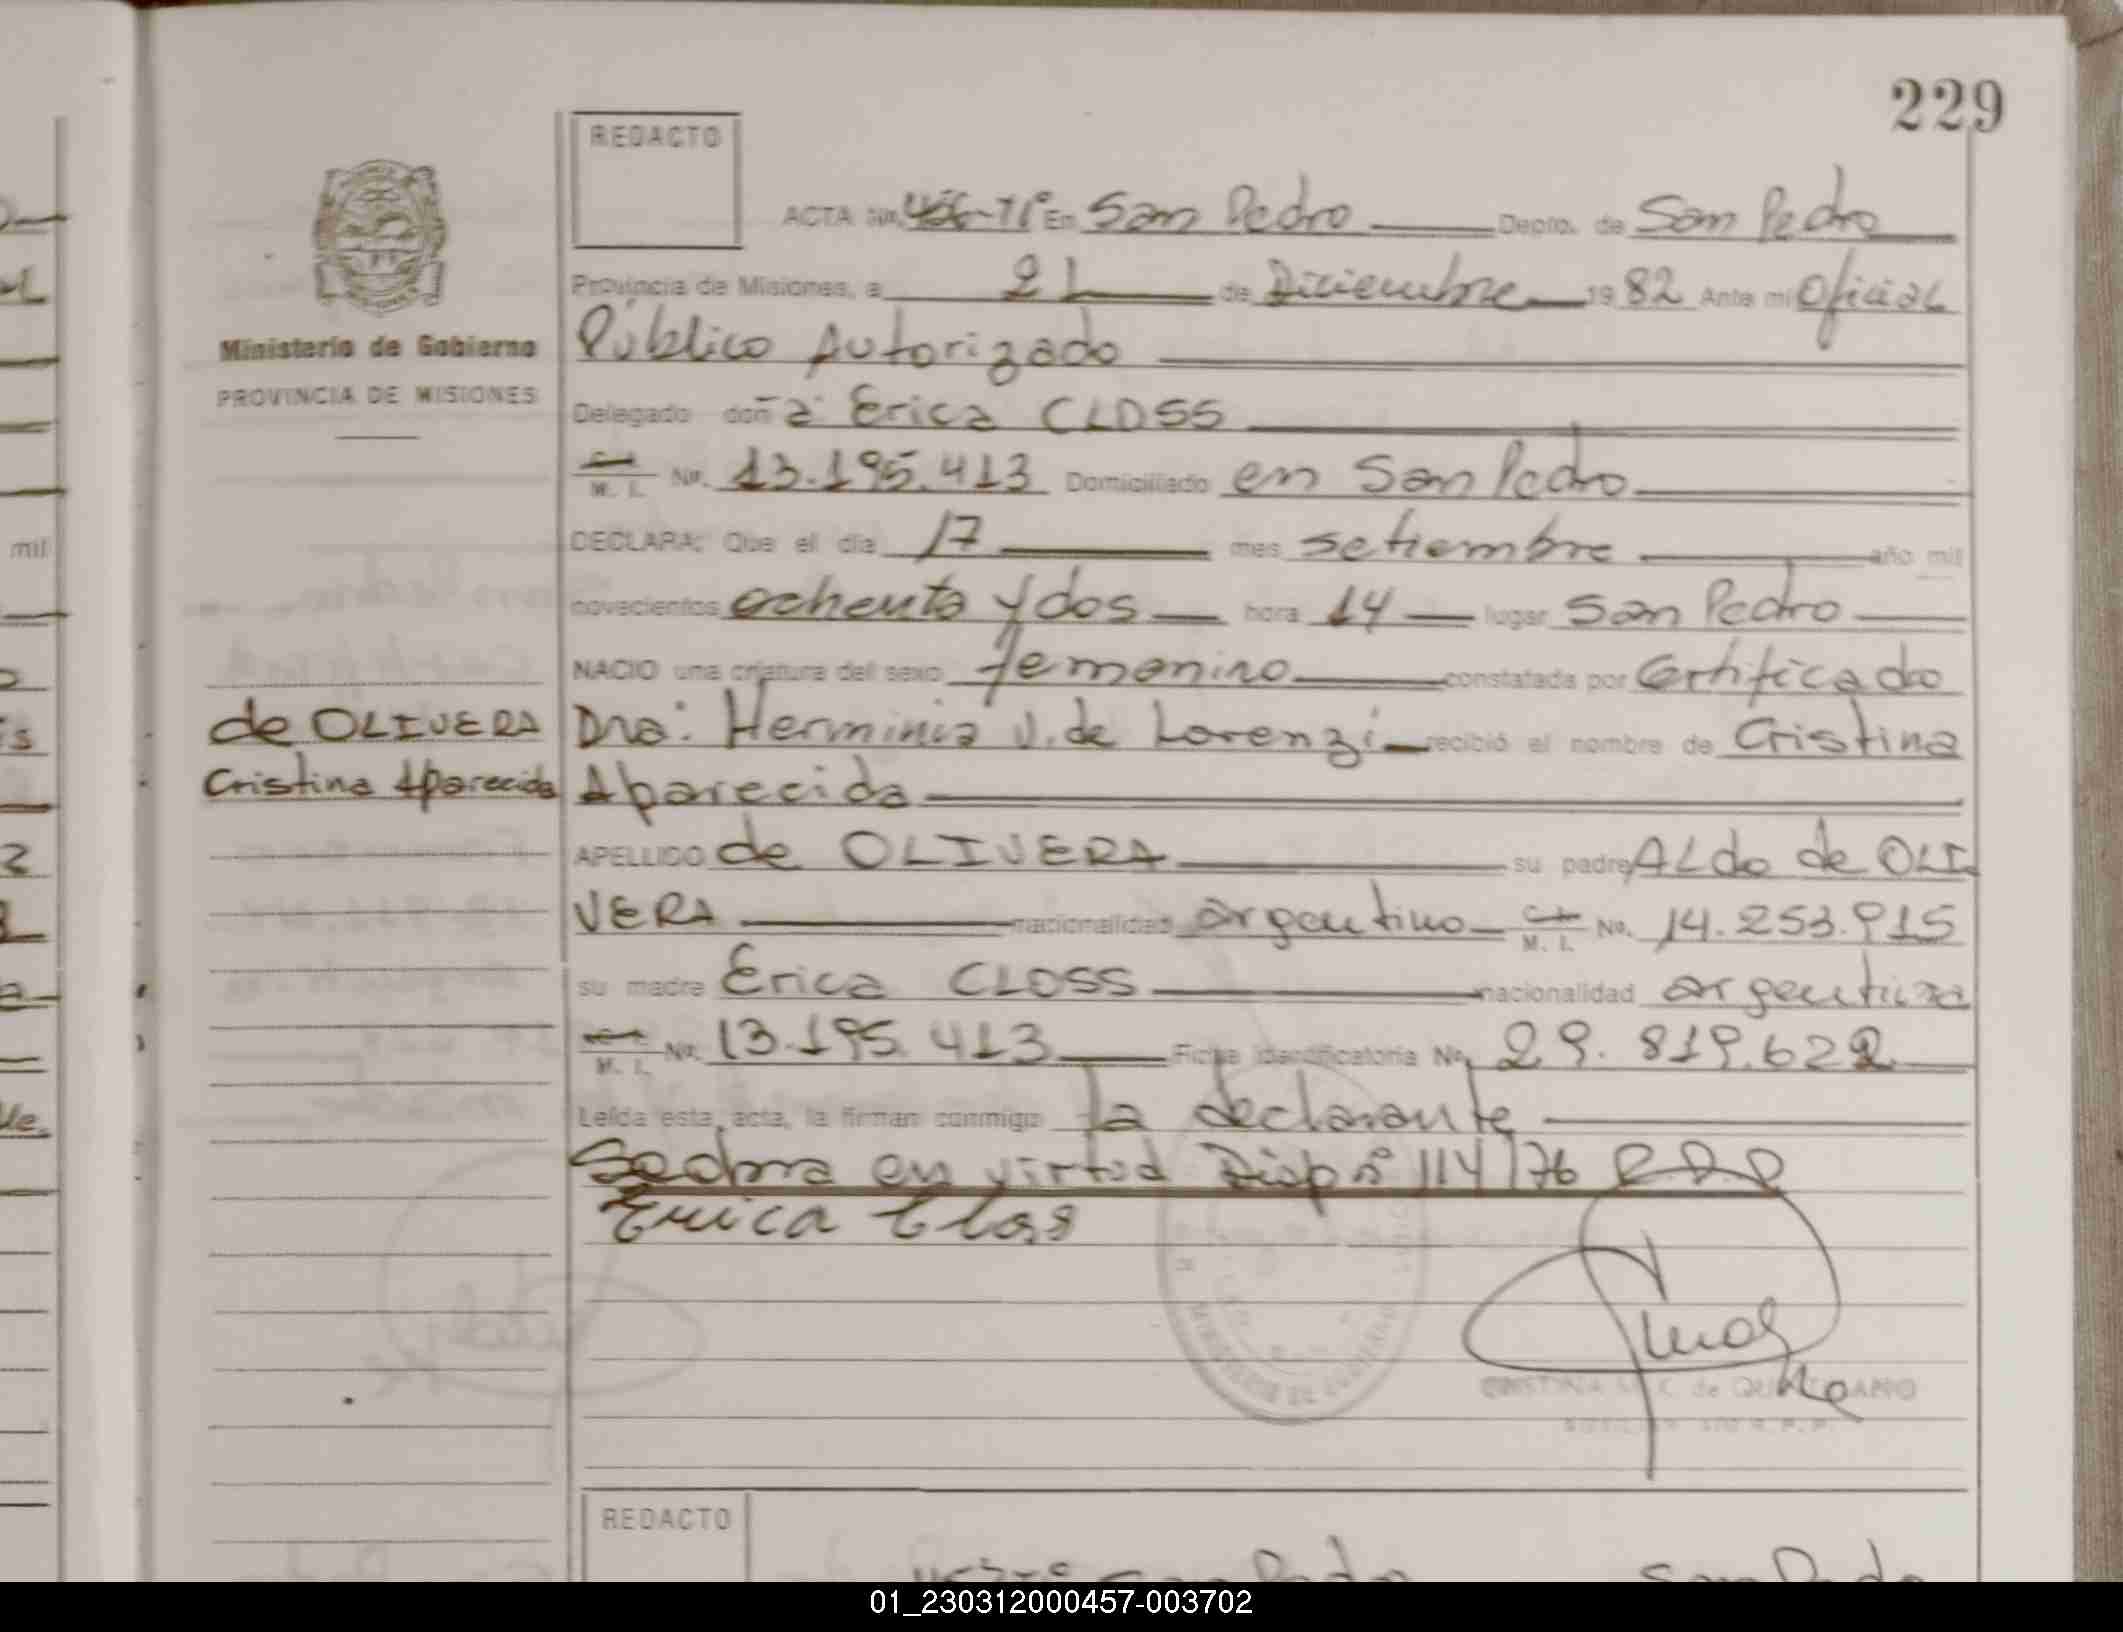 229
REDACTO
ACTA Nº 456-Tº En San Pedro Depto. de San Pedro
Provincia de Misiones, a 21 de Diciembre 1982 Ante mi Oficial
Público Autorizado
Ministerio de Gobierno
PROVINCIA DE MISIONES
Delegado doña Erica CLOSS
M. I. No. 13.195.413 Domiciliado en San Pedro
DECLARA: Que el día 17 mes setiembre año mil
novecientos ochenta y dos hora 14 lugar San Pedro
NACIO una criatura del sexo femenino constatada por Certificado
de OLIVERA
Cristina Aparecida
Dra: Herminia V. de Lorenzi recibió el nombre de Cristina
Aparecida
APELLIDO de OLIVERA su padre ALdo de OLI
VERA nacionalidad argentino M. I. No. 14.253.915
su madre Erica CLOSS nacionalidad argentina
M. I. No. 13.195.413 Ficha Identificatoria No. 29.819.622
Leída esta acta, la firman conmigo la declarante
Se obra en virtud Disp nº 114/76 R.D.P
Erica Clos
MINISTERIO DE GOBIERNO
CRISTINA de
REDACTO
San Pedro San Pedro
mil
01_230312000457-003702